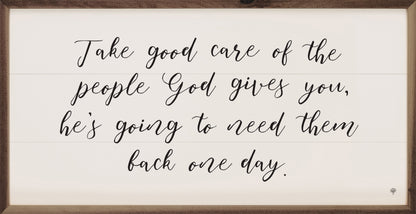 Take good care of the
people God gives you,
he's going to need them
back one day.